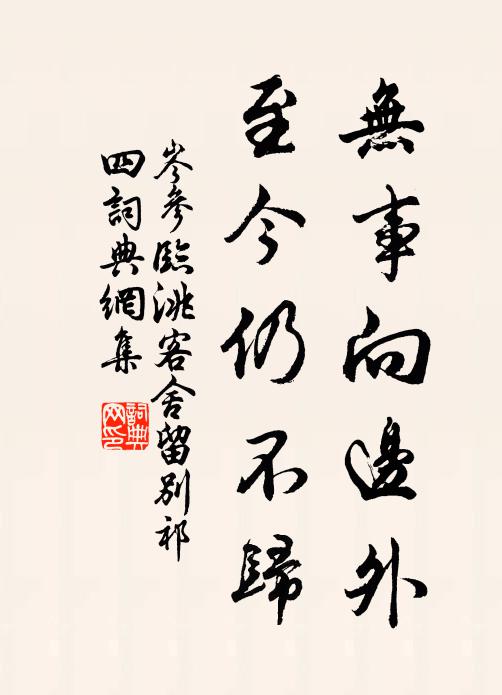 無事向邊外
至今仍不歸
岑參臨洮客舍留別祁
四詞典網集
詞典
网印